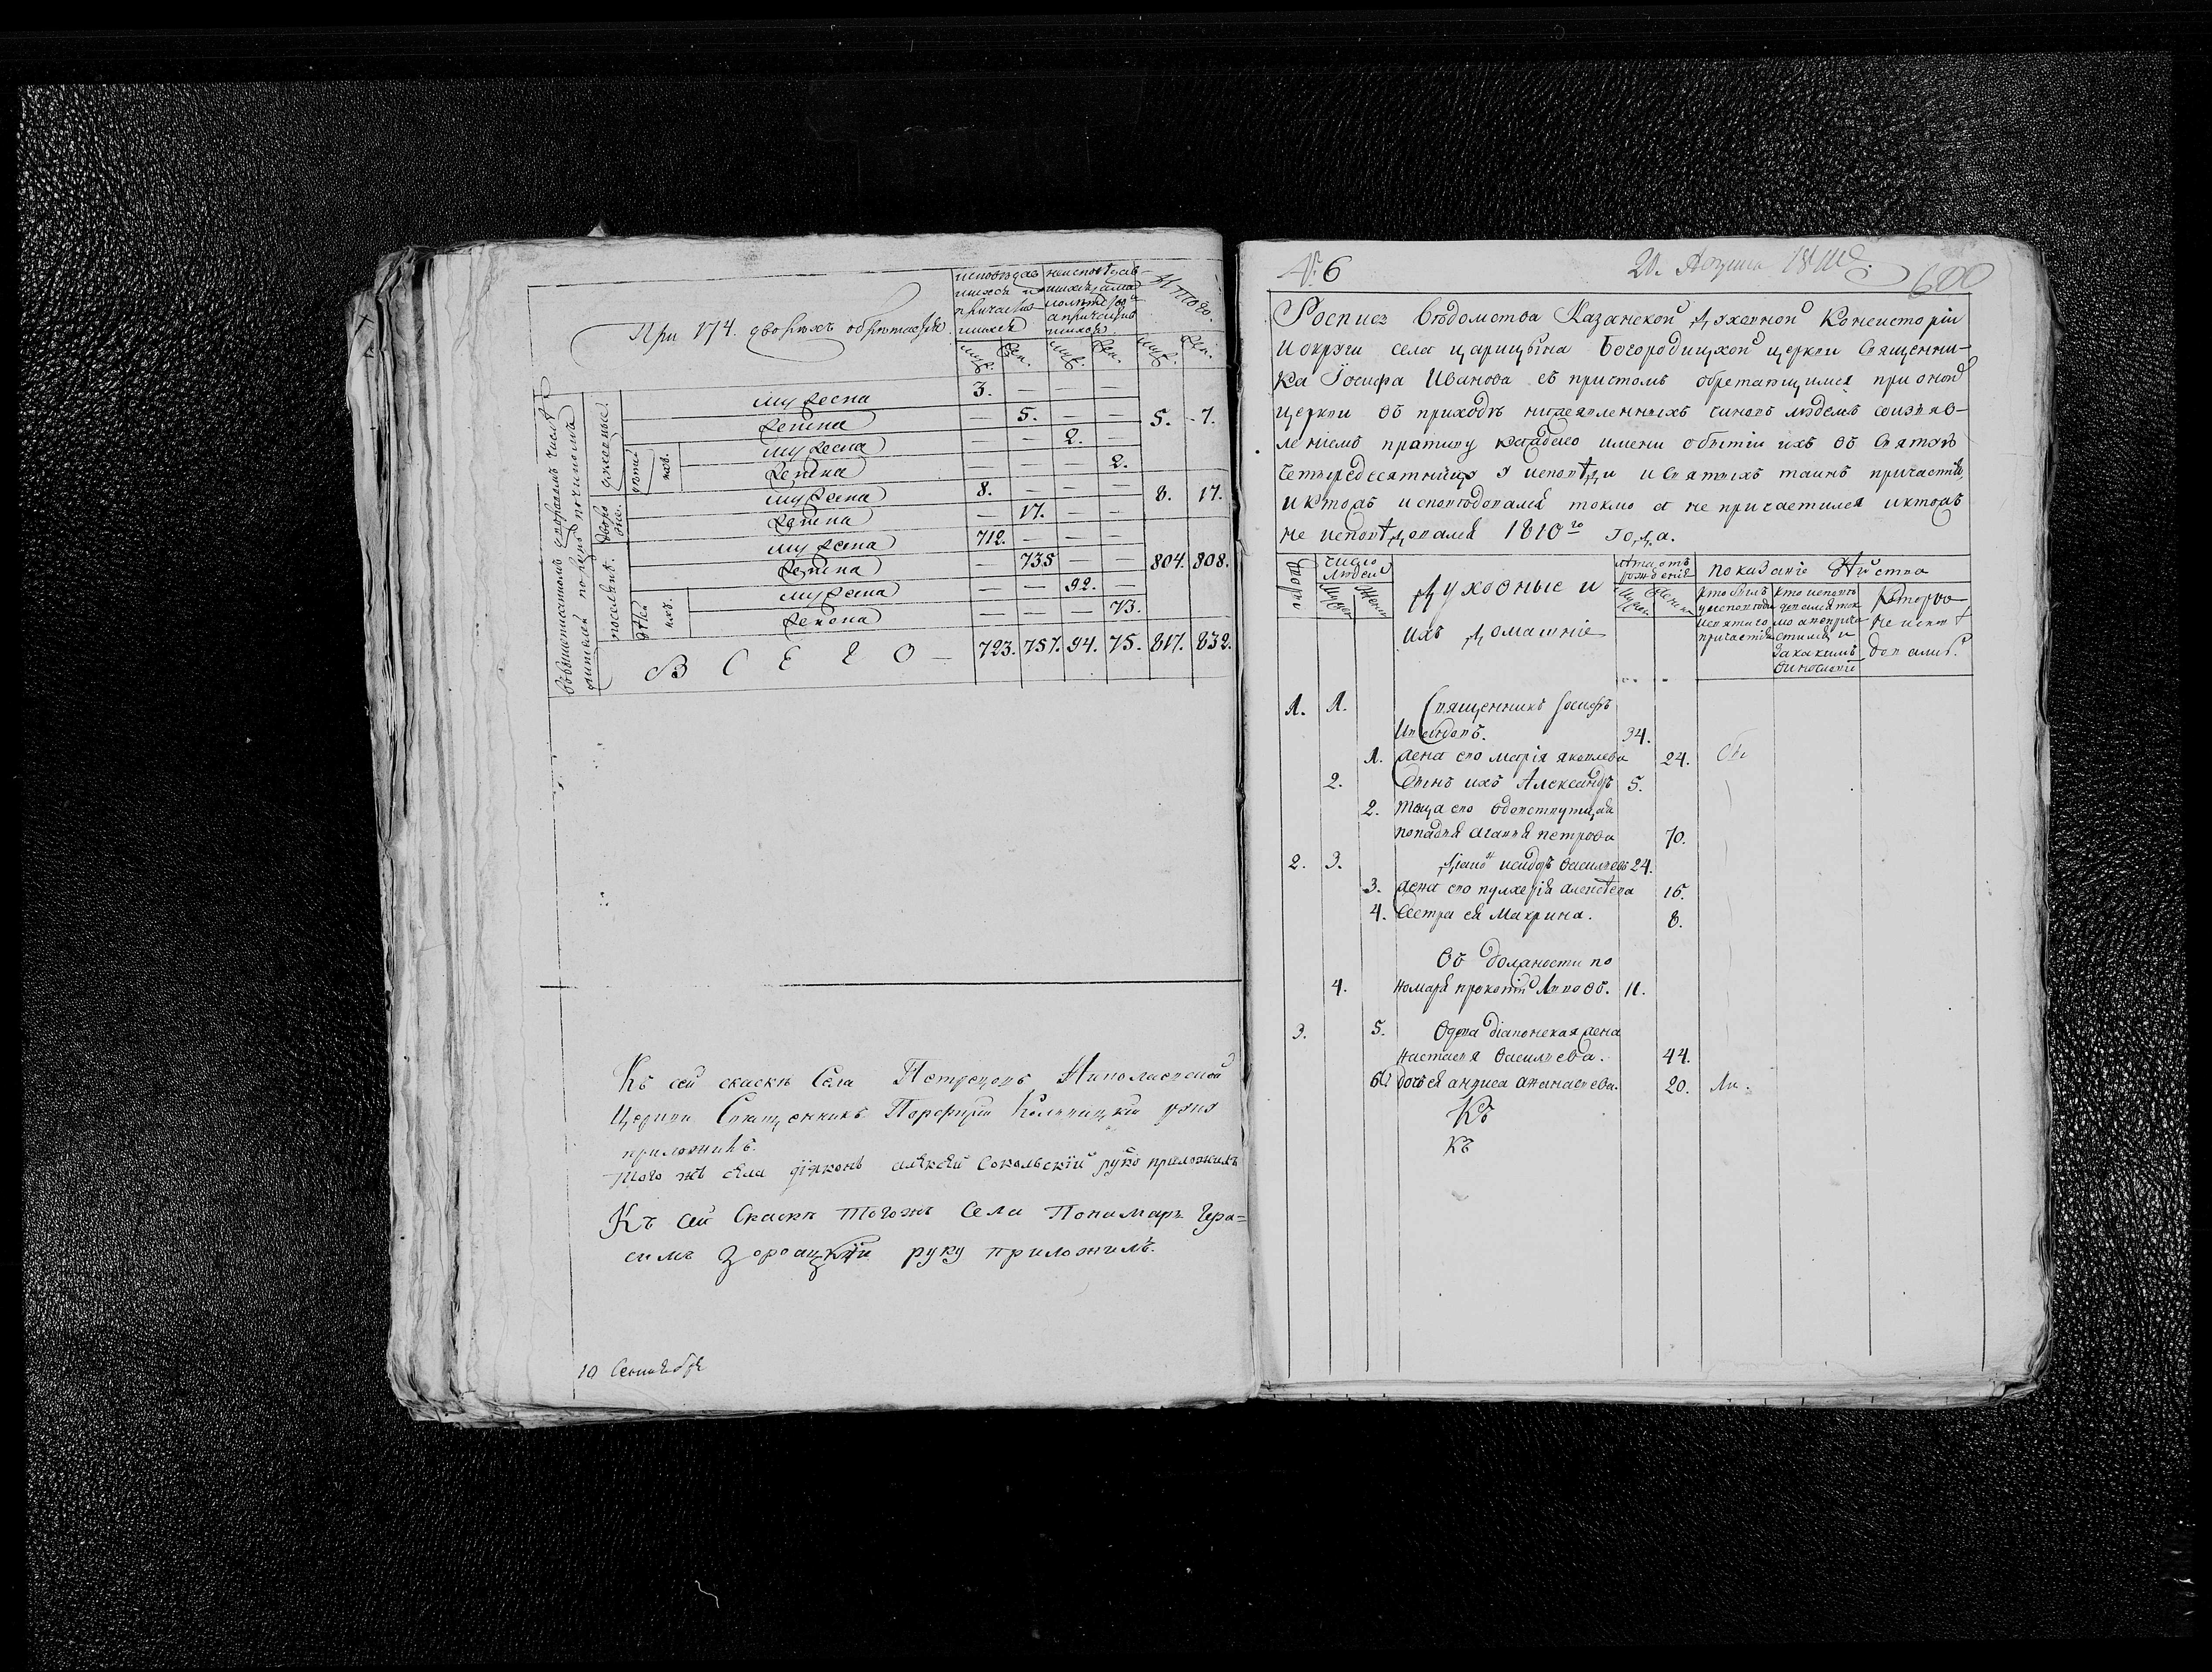 При 174. дворѣхъ обрѣтается
исповѣдав неисповѣдав
шихся и шихся за мало
причастив лѣтством
шихся а причастив
шихся
Итого.
муж. жен. муж. жен. муж. жен.
духовные.
мужеска 3. — — —
женска — 5. — — 5. 7.
дѣтей ихъ.
мужеска — — 2. —
женска — — — 2.
дворо
вые.
мужеска 8. — — — 8. 17.
женска — 17. — —
поселянѣ.
мужеска 712. — — —
женска — 735 — — 804. 808.
дѣтей ихъ.
мужеска — — 92. —
женска — — — 73.
В С Е Г О — 723. 757. 94. 75. 817. 832.
Къ сей скаскѣ Села
Церкви Священникъ Порфирій руку
приложилъ.
Того жъ села діяконъ алексѣй Сокольскій руку приложилъ
Къ сей Скаскѣ тогожъ Села Пономарь Гера=
симъ руку приложилъ.
10 Сентября
№ 6
20. 600
Роспись вѣдомства Казанской Духовной Консисторіи
и округи села царицына Богородицкой церкви Священни-
ка Іосифа Иванова съ причтомъ обретающимся при оной
церкви въ приходѣ нижеявленныхъ чиновъ людемъ соизъяв-
леніемъ противу каждаго имени о бытіи ихъ во Святую
Четыредесятницу у исповѣди и Святыхъ таинъ причастія,
и ктожъ исповѣдовался токмо а не причастился и ктожъ
не исповѣдовался 1810го года.
число
людей
Духовные и
ихъ домашніе
лѣта отъ
рожденія
показаніе дѣйства
кто былъ
у исповѣди
и святаго
причастія
кто исповѣ
довался ток
мо а не прича
стился и
за какимъ
винословіе
которые
не исповѣ
довались.
1. 1. Священникъ Іосифъ
Ивановъ. 34.
1. жена его марія яковлева 24. бы
2. Сынъ ихъ Александръ 5.
2. теща его вдовствующая
попадья агафья петрова 70.
2. 3. діаконъ исидоръ васильевъ 24.
3. жена его пулхерія алексѣева 16.
4. Сестра ея Макрина. 8.
Въ должности по
4. номаря прокопій 11.
3. 5. Вдова діаконская жена
настасья васильева. 44.
6. дочь ея анфиса афанасьева. 20. ли.
Къ
къ